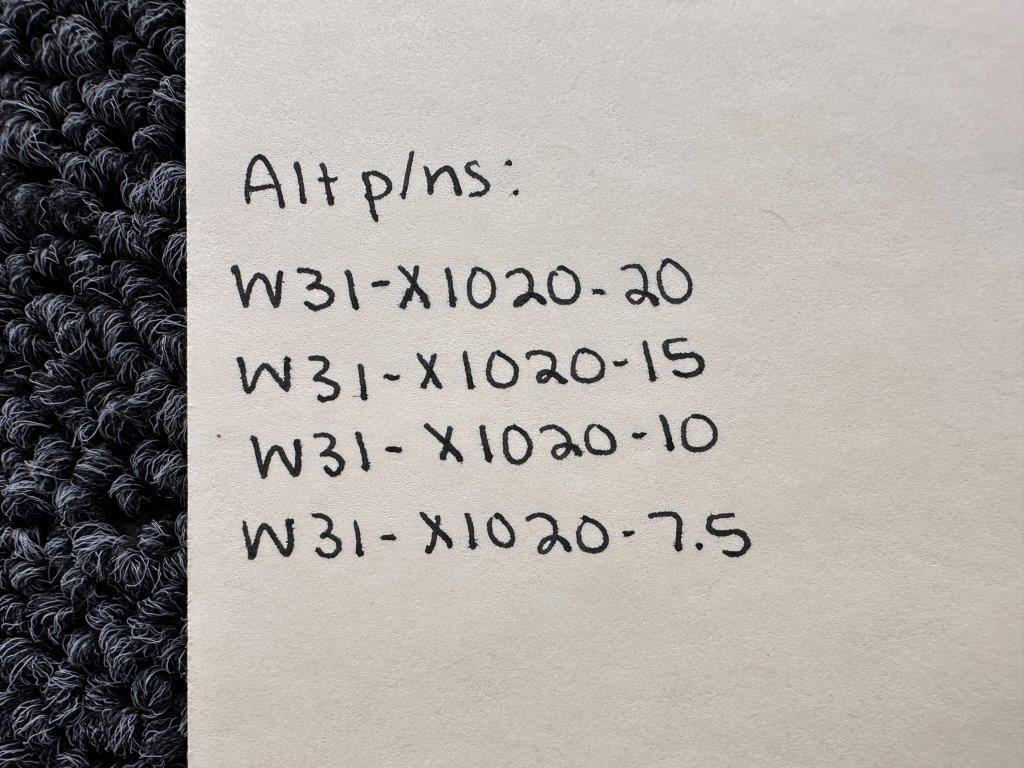 Alt p/ns:
W31-X1020-20
W31-X1020-15
W31-X1020-10
W31-X1020-7.5